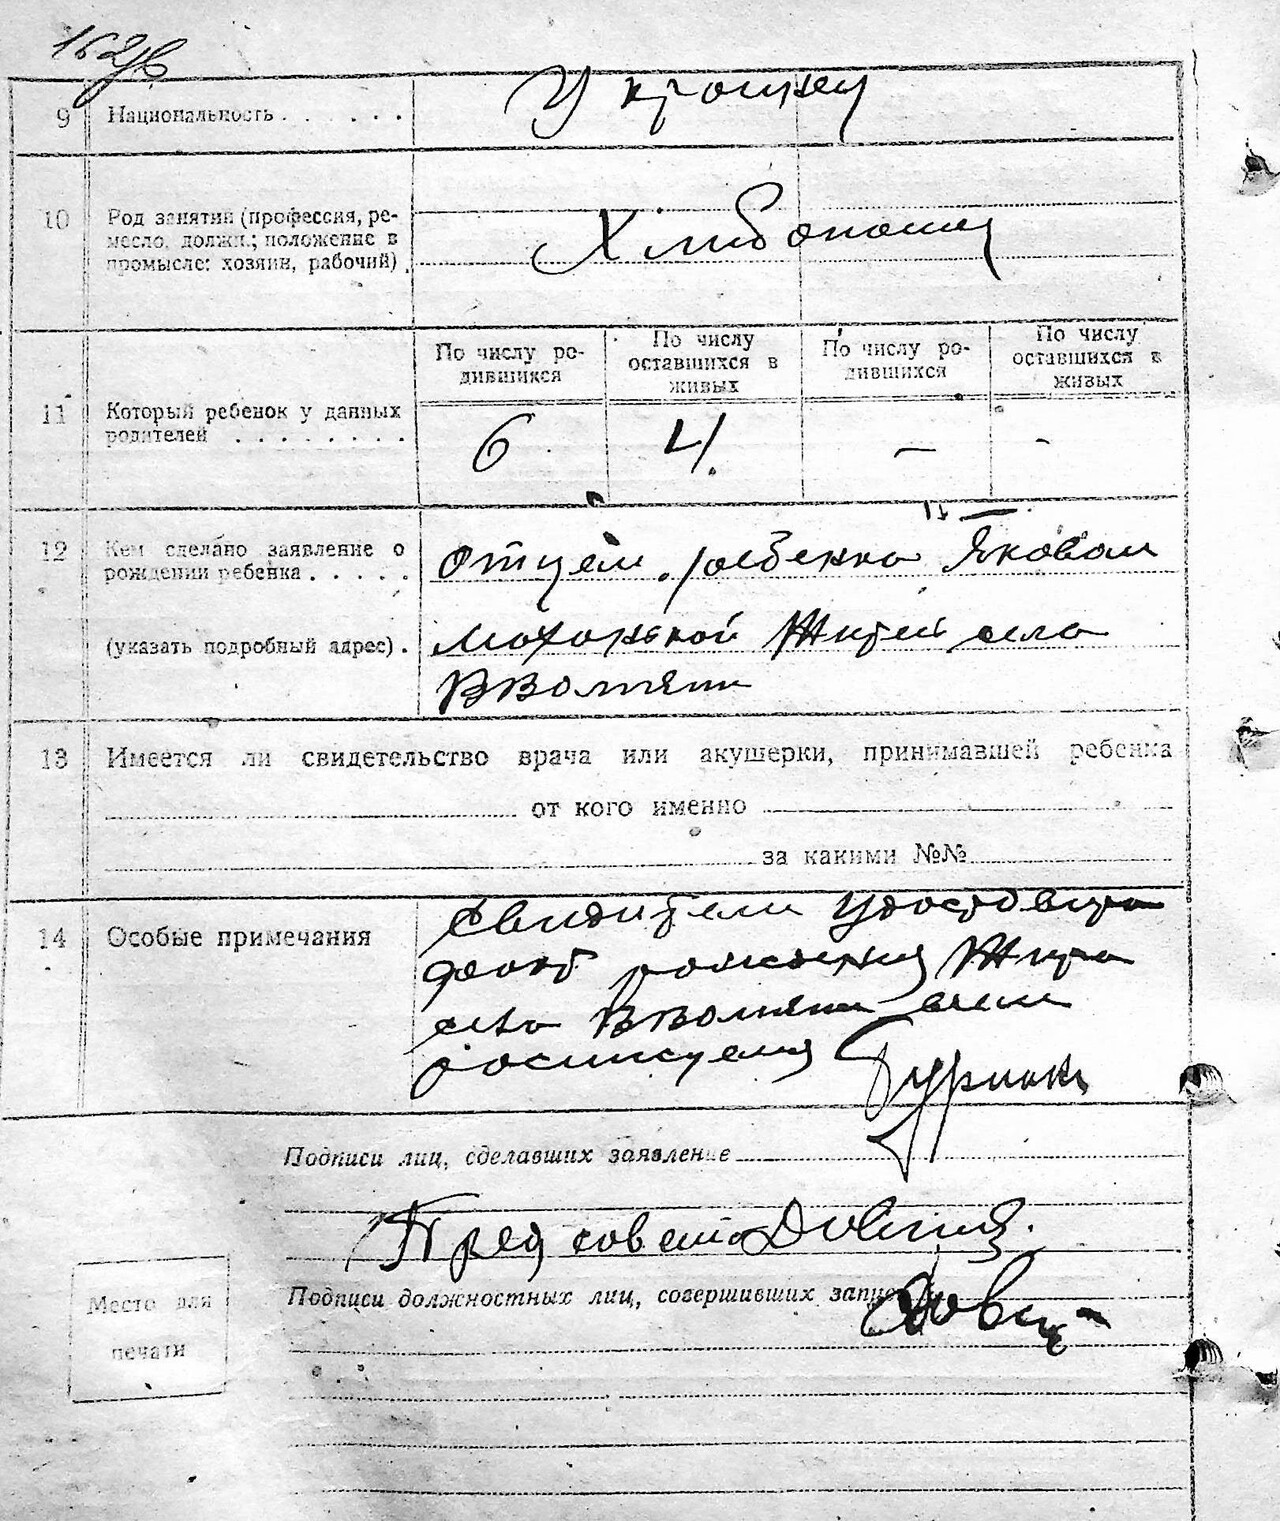 9 Национальность . . . . . .
Украинец
10 Род занятий (профессия, ре-
месло, должн.; положение в
промысле: хозяин, рабочий)
Хлибопашец
По числу ро-
дившихся
По числу
оставшихся в
живых
По числу ро-
дившихся
По числу
оставшихся в
живых
11 Который ребенок у данных
родителей . . . . . . . .
6 4 — -
12 Кем сделано заявление о
рождении ребенка . . . . .
отцем ребенка Яковом
(указать подробный адрес) .
жител села
13 Имеется ли свидетельство врача или акушерки, принимавшей ребенка
от кого именно
за какими №№
14 Особые примечания
Свидители
факт рождения жители
села
Подписи лиц, сделавших заявление
Пред совета
Подписи должностных лиц, совершивших запись
Место для
печати